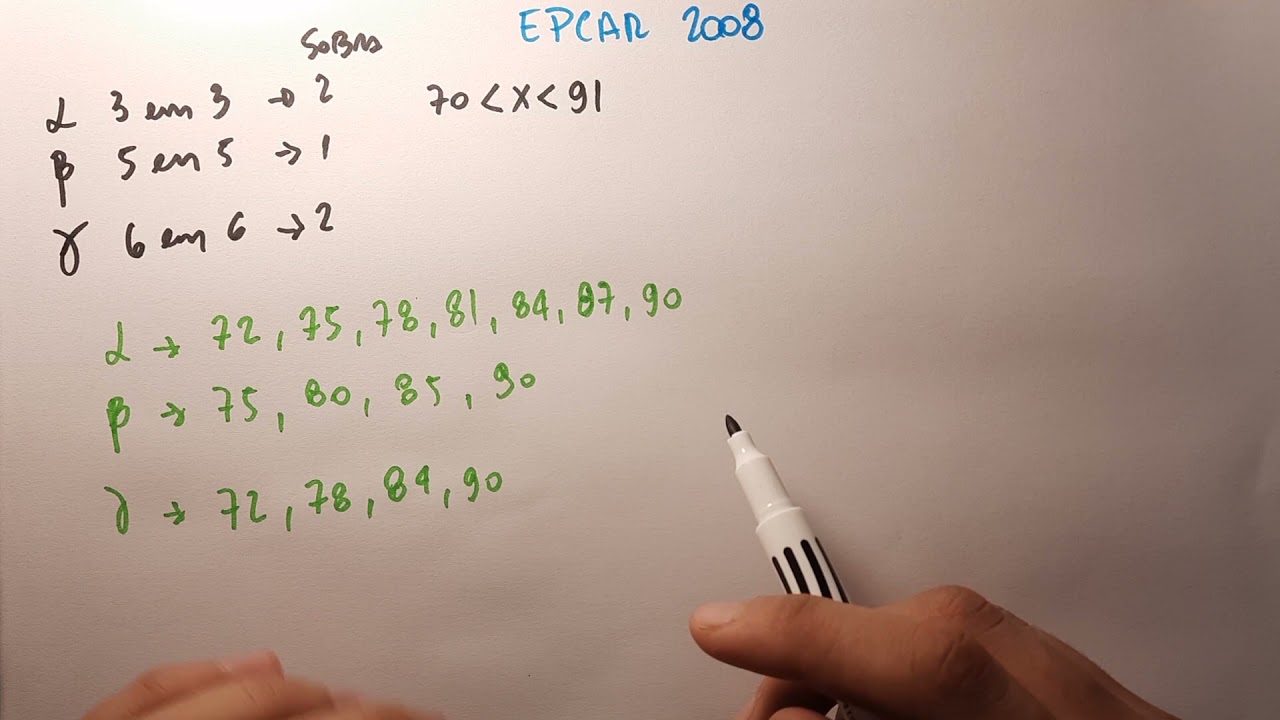 EPCAR 2008
SOBRA
α 3 em 3 → 2
70 < x < 91
β 5 en 5 → 1
γ 6 em 6 → 2
α → 72, 75, 78, 81, 84, 87, 90
β → 75, 80, 85, 90
γ → 72, 78, 84, 90